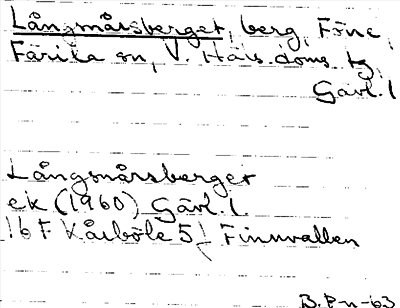 Långmårsberget, berg, Före,
Färila sn, V. Häls. doms. tg,
Gävl. l
Långsmårsberget
ek (1960) Gävl. l.
16 F Kårböle 5 f Finnvallen
B. P-n -63